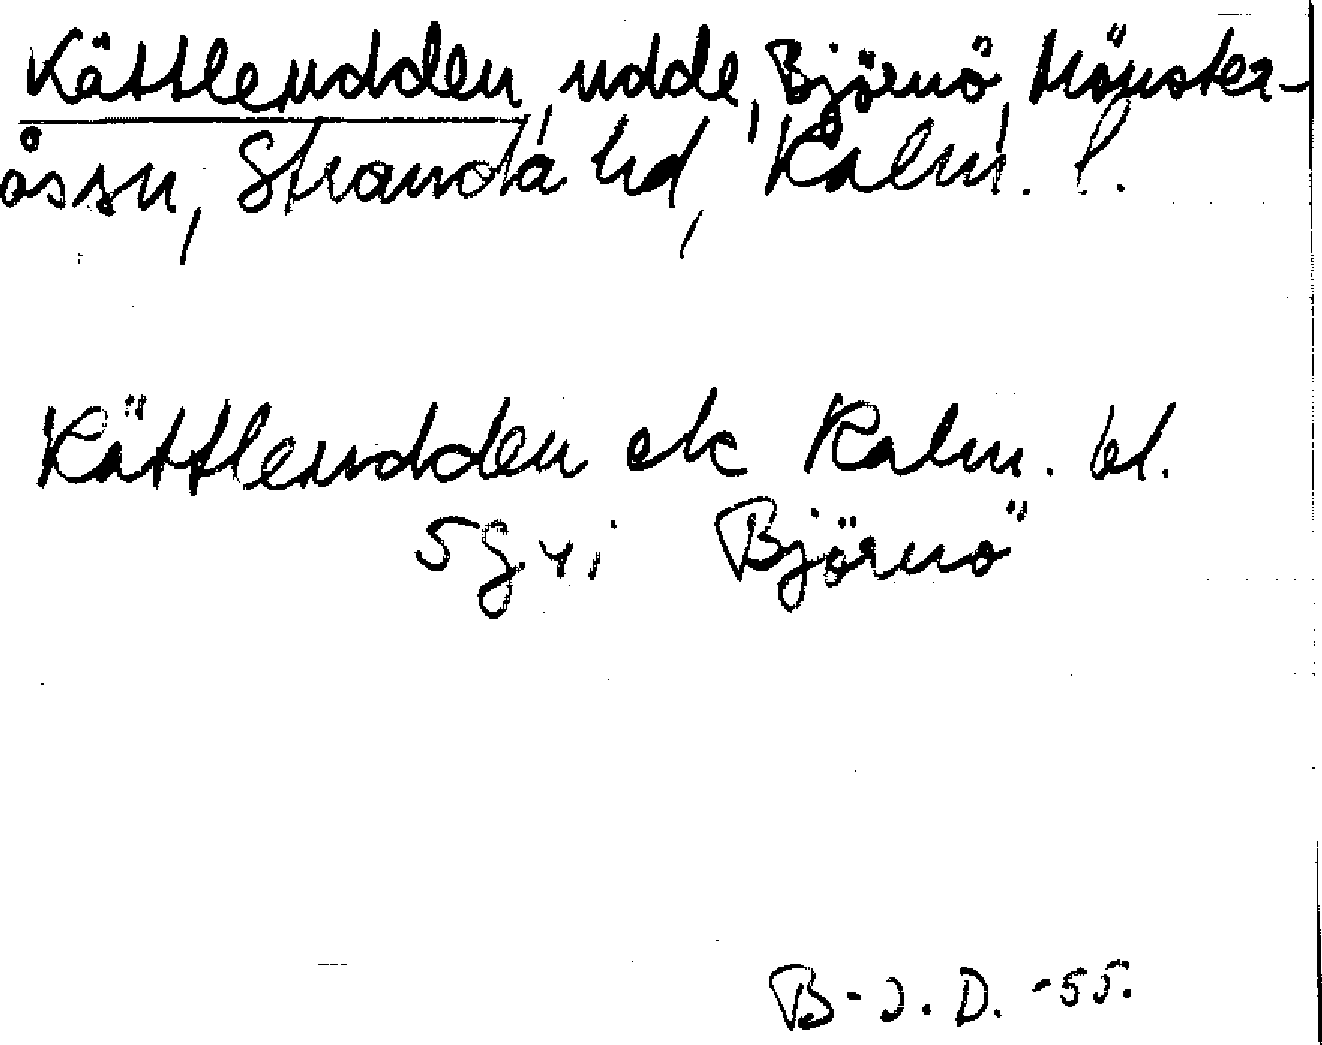 Kättleudden, udde, Björnö, Mönster-
åssn, Stranda hd, Kalm. l.
Kättleudden ek Kalm. bl.
5g vi Björnö
B-J. D. -55.